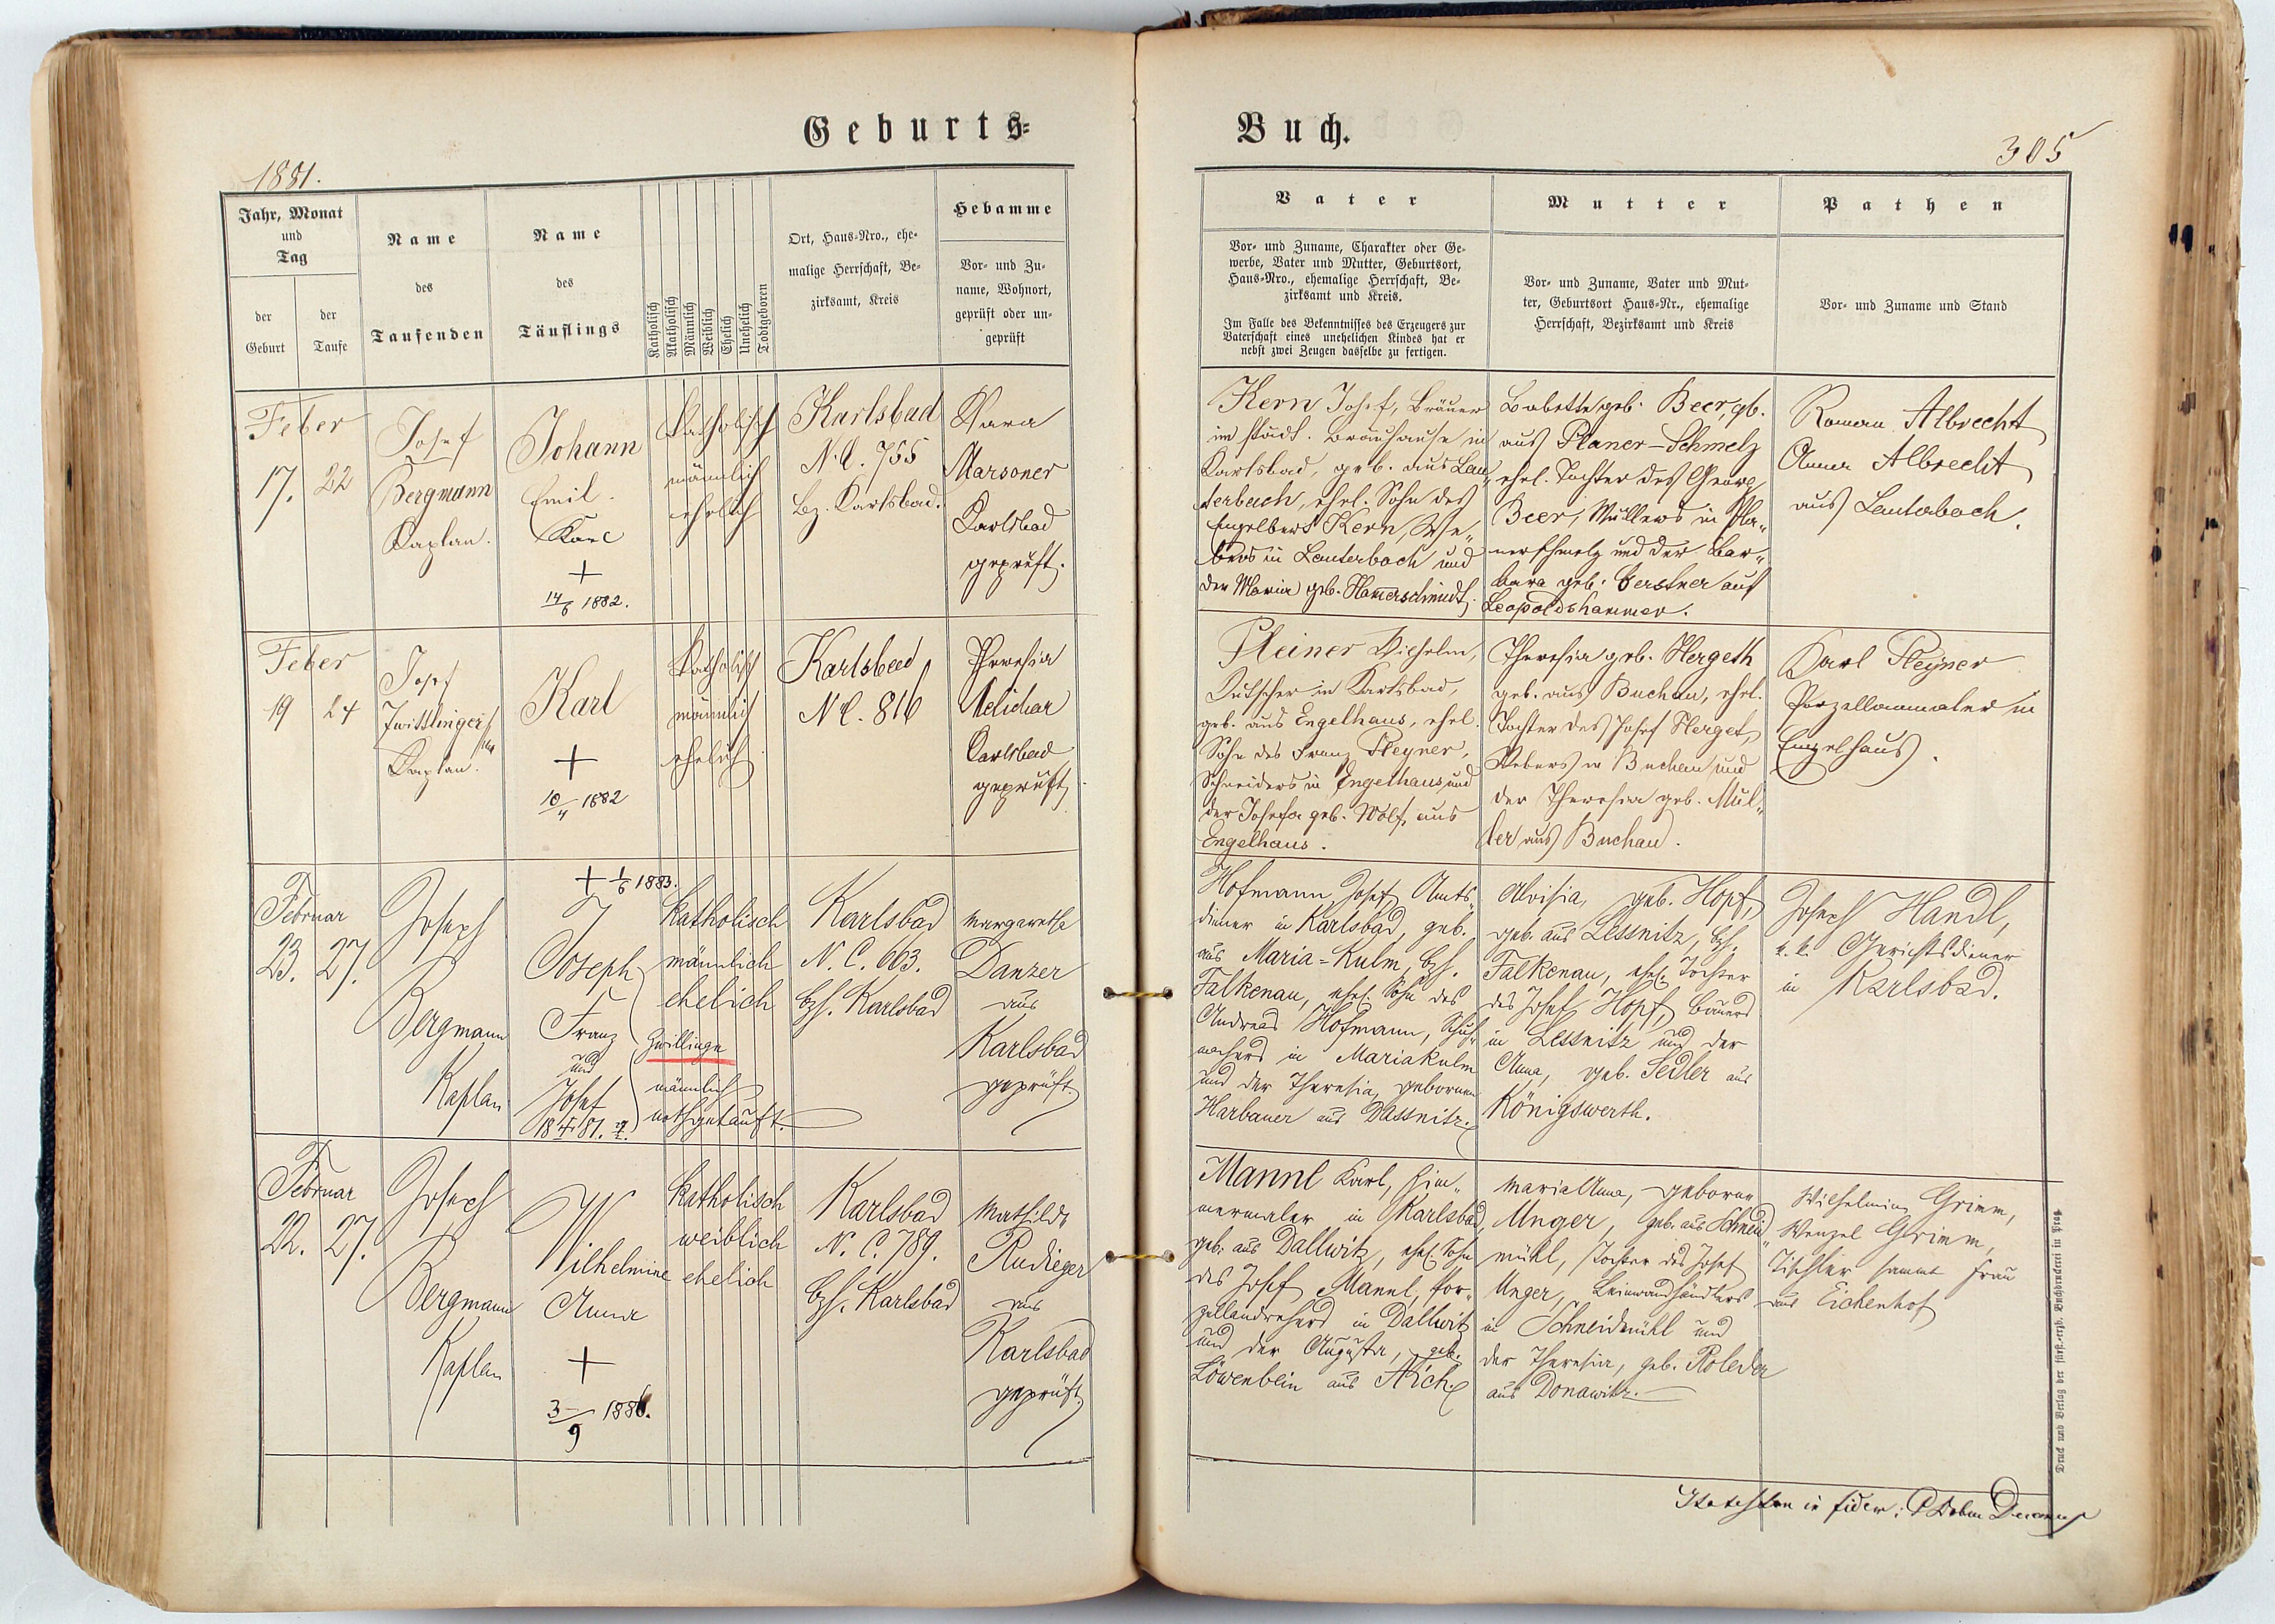 Geburts-
Buch.
1881.
305
Jahr, Monat
und
Tag
der
Geburt
der
Taufe
Name
des
Taufenden
Name
des
Täuflings
Katholisch
Akatholisch
Männlich
Weiblich
Ehelich
Unehelich
Todtgeboren
Ort, Haus-Nro., ehe-
malige Herrschaft, Be-
zirksamt, Kreis
Hebamme
Vor- und Zu-
name, Wohnort,
geprüft oder un-
geprüft
Vater
Vor- und Zuname, Charakter oder Ge-
werbe, Vater und Mutter, Geburtsort,
Haus-Nro., ehemalige Herrschaft, Be-
zirksamt und Kreis.
Im Falle des Bekenntnisses des Erzeugers zur
Vaterschaft eines unehelichen Kindes hat er
nebst zwei Zeugen dasselbe zu fertigen.
Mutter
Vor- und Zuname, Vater und Mut-
ter, Geburtsort Haus-Nr., ehemalige
Herrschaft, Bezirksamt und Kreis
Pathen
Vor- und Zuname und Stand
Feber
17.
22
Josef
Bergmann
Kaplan.
Johann
Emil.
Karl
+
14/6 1882.
Katholisch
männlich
ehelich
Karlsbad
N.C. 755
Bz. Karlsbad.
Klara
Marsoner
Karlsbad
geprüft.
Kern Josef, Bräuer
im städt. Bräuhause in
Karlsbad, geb. aus Lau„
terbach, ehel. Sohn des
Engelbert Kern, We„
bers in Lauterbach und
der Maria geb. Hamerschmidt.
Babette, geb. Beer, gb.
aus Planer-Schmelz
ehel. Tochter des Georg
Beer, Müllers in Pla„
nerschmelz und der Bar„
bara geb. Gerstner aus
Leopoldshammer.
Roman Albrecht
Anna Albrecht
aus Lauterbach.
Feber
19
24
Josef
Zwittlinger
Kaplan.
Karl
+
10/4 1882
Katholisch
männlich
ehelich
Karlsbad
N C. 816
Theresia
Melichar
Karlsbad
geprüft
Pleiner Wilhelm,
Kutscher in Karlsbad,
geb. aus Engelhaus, ehel.
Sohn des Franz Pleyner,
Schneiders in Engelhaus und
der Josefa geb. Wolf, aus
Engelhaus.
Theresia geb. Hergeth
geb. aus Buchau, ehel.
Tochter des Josef Herget,
Webers in Buchau und
der Theresia geb. Mül„
ler aus Buchau.
Karl Pleyner
Porzellanmaler in
Engelhaus.
Februar
23.
27.
Joseph
Bergmann
Kaplan
+ 1/6 1883.
Joseph
Franz
und
Josef
Katholisch
männlich
ehelich
Zwillinge
männlich
nothgetauft.
Karlsbad
N. C. 663.
Bzh. Karlsbad
Margaretha
Danzer
aus
Karlsbad
geprüft.
Hofmann Josef, Amts„
diener in Karlsbad, geb.
aus Maria-Kulm, Bzh.
Falkenau, ehel. Sohn des
Andreas Hofmann, Schuh„
machers in Mariakulm
und der Theresia, gebornen
Harbauer aus Dassnitz.
Aloisia, geb. Hopf,
geb. aus Lessnitz, Bzh.
Falkenau, ehel. Tochter
des Josef Hopf, Bauers
in Lessnitz und der
Anna, geb. Sedler aus
Königswerth.
Joseph Handl,
k. k. Gerichtsdiener
in Karlsbad.
Februar
22.
27.
Joseph
Bergmann
Kaplan
Wilhelmine
Anna
+
3/9 1886.
Katholisch
weiblich
ehelich
Karlsbad
N. C. 789.
Bzh. Karlsbad
Mathilde
Rudieger
aus
Karlsbad
geprüft.
Mannl Karl, Zim„
mermaler in Karlsbad,
geb. aus Dallwitz, ehel. Sohn
des Josef Mannl, Por„
zellandrehers in Dallwitz
und der Augusta, geb.
Löwenbein aus Aich.
Maria Anna, geborne
Unger, geb. aus Schneid„
mühl, Tochter des Josef
Unger, Leinwandhändlers
in Schneidmühl und
der Theresia, geb. Roleder
aus Donawitz.
Wilhelmine Grimm,
Wenzel Grimm,
Tischler sammt Frau
aus Eichenhof
in fidem:
Druck und Verlag der fürst.-erzb. Buchdruckerei in Prag.